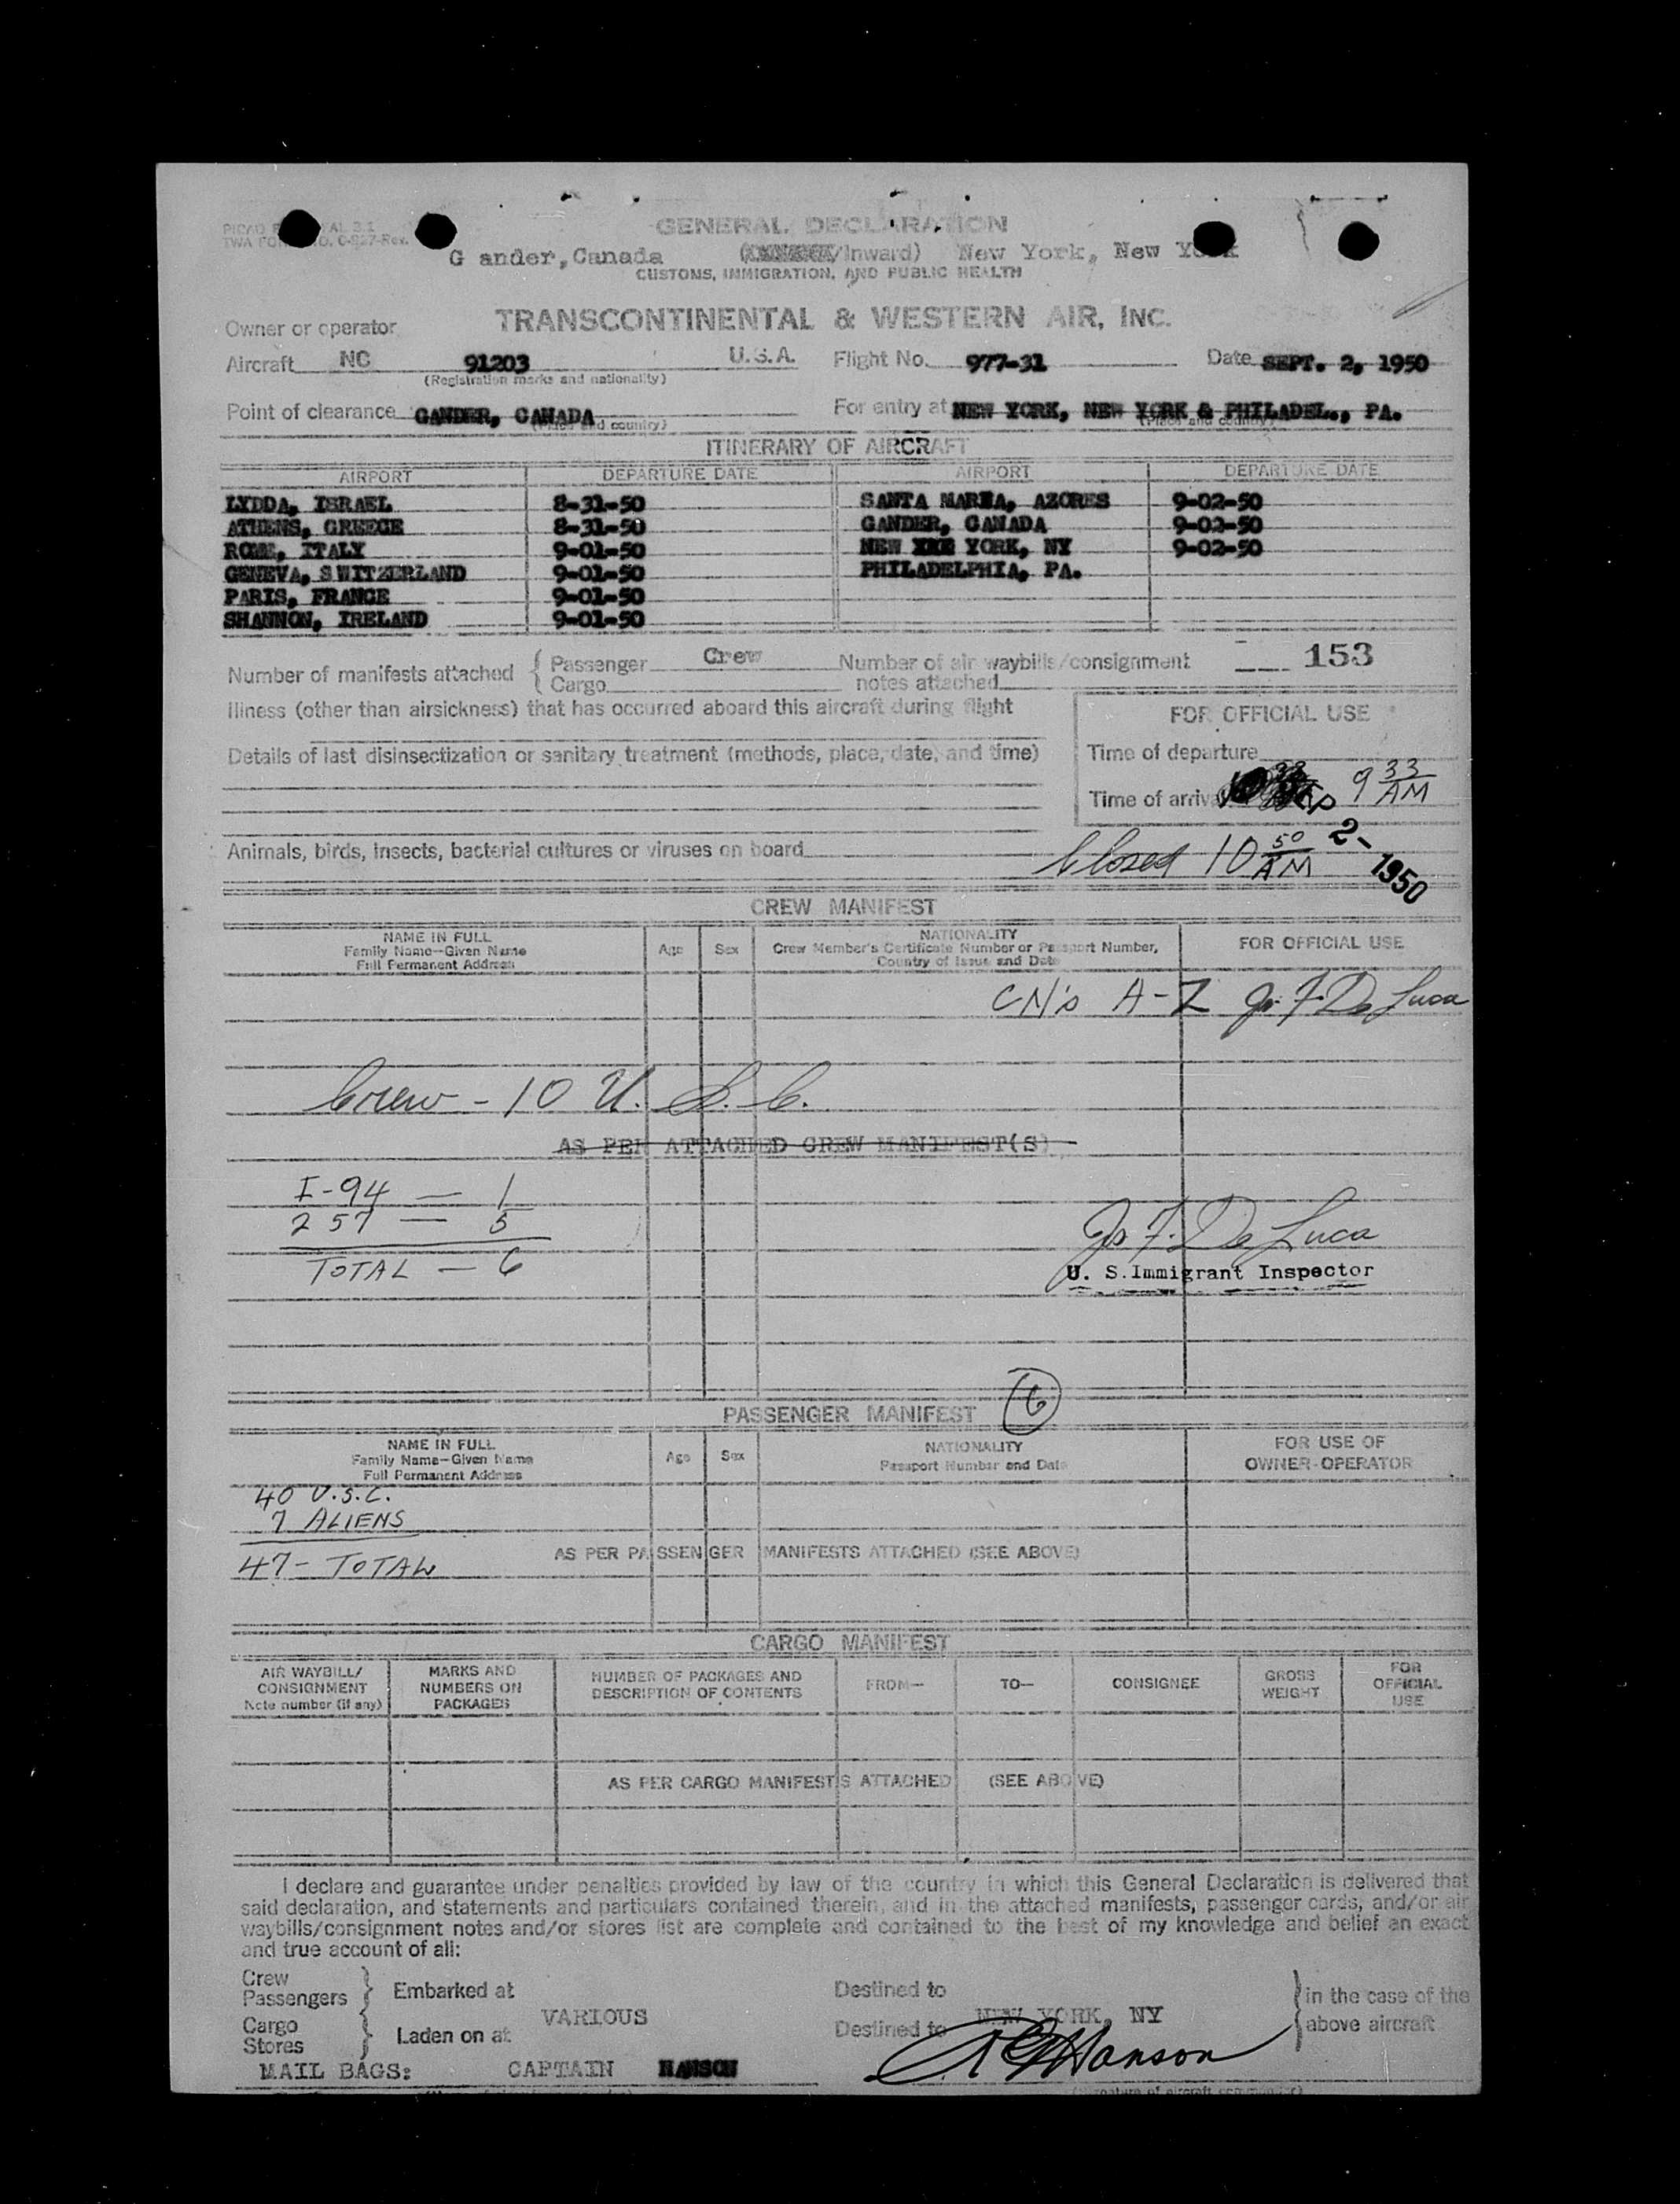 GENERAL DECLARATION
TWA FORM NO. 0-927-Rev.
G ander, Canada /Inward) New York, New York
CUSTOMS, IMMIGRATION, AND PUBLIC HEALTH
Owner or operator TRANSCONTINENTAL & WESTERN AIR, INC.
Aircraft NC 91203 U.S.A. Flight No. 977-31 Date SEPT. 2, 1950
(Registration marks and nationality)
Point of clearance GANDER, CANADA For entry at NEW YORK, NEW YORK & PHILADEL., PA.
(Place and country) (Place and country)
ITINERARY OF AIRCRAFT
AIRPORT DEPARTURE DATE AIRPORT DEPARTURE DATE
LYDDA, ISRAEL 8-31-50 SANTA MARIA, AZORES 9-02-50
ATHENS, GREECE 8-31-50 GANDER, CANADA 9-02-50
ROME, ITALY 9-01-50 NEW YORK, NY 9-02-50
GENEVA, SWITZERLAND 9-01-50 PHILADELPHIA, PA.
PARIS, FRANCE 9-01-50
SHANNON, IRELAND 9-01-50
Number of manifests attached { Passenger Crew Number of air waybills/consignment 153
Cargo notes attached
Illness (other than airsickness) that has occurred aboard this aircraft during flight
FOR OFFICIAL USE
Details of last disinsectization or sanitary treatment (methods, place, date, and time)
Time of departure
Time of arrival 9 33 AM
SEP 2-1950
Animals, birds, insects, bacterial cultures or viruses on board
Closed 10 50 AM
CREW MANIFEST
NAME IN FULL
Family Name—Given Name
Full Permanent Address
Age Sex
NATIONALITY
Crew Member's Certificate Number or Passport Number,
Country of Issue and Date
FOR OFFICIAL USE
CN's A-Z Js. F. De Luca
Crew - 10 U. S. C.
AS PER ATTACHED CREW MANIFEST(S)
I-94 — 1
257 — 5
TOTAL — 6
Js. F. De Luca
U. S. Immigrant Inspector
6
PASSENGER MANIFEST
NAME IN FULL
Family Name—Given Name
Full Permanent Address
Age Sex
NATIONALITY
Passport Number and Date
FOR USE OF
OWNER-OPERATOR
40 U.S.C.
7 ALIENS
47 - TOTAL
AS PER PASSENGER MANIFESTS ATTACHED (SEE ABOVE)
CARGO MANIFEST
AIR WAYBILL/
CONSIGNMENT
Note number (if any)
MARKS AND
NUMBERS ON
PACKAGES
NUMBER OF PACKAGES AND
DESCRIPTION OF CONTENTS
FROM—
TO—
CONSIGNEE
GROSS
WEIGHT
FOR
OFFICIAL
USE
AS PER CARGO MANIFESTS ATTACHED (SEE ABOVE)
I declare and guarantee under penalties provided by law of the country in which this General Declaration is delivered that
said declaration, and statements and particulars contained therein, and in the attached manifests, passenger cards, and/or air
waybills/consignment notes and/or stores list are complete and contained to the best of my knowledge and belief an exact
and true account of all:
Crew
Passengers } Embarked at Destined to } in the case of the
VARIOUS NEW YORK, NY
Cargo
Stores } Laden on at Destined to above aircraft
MAIL BAGS: CAPTAIN HANSON Hanson
(Signature of aircraft commander)